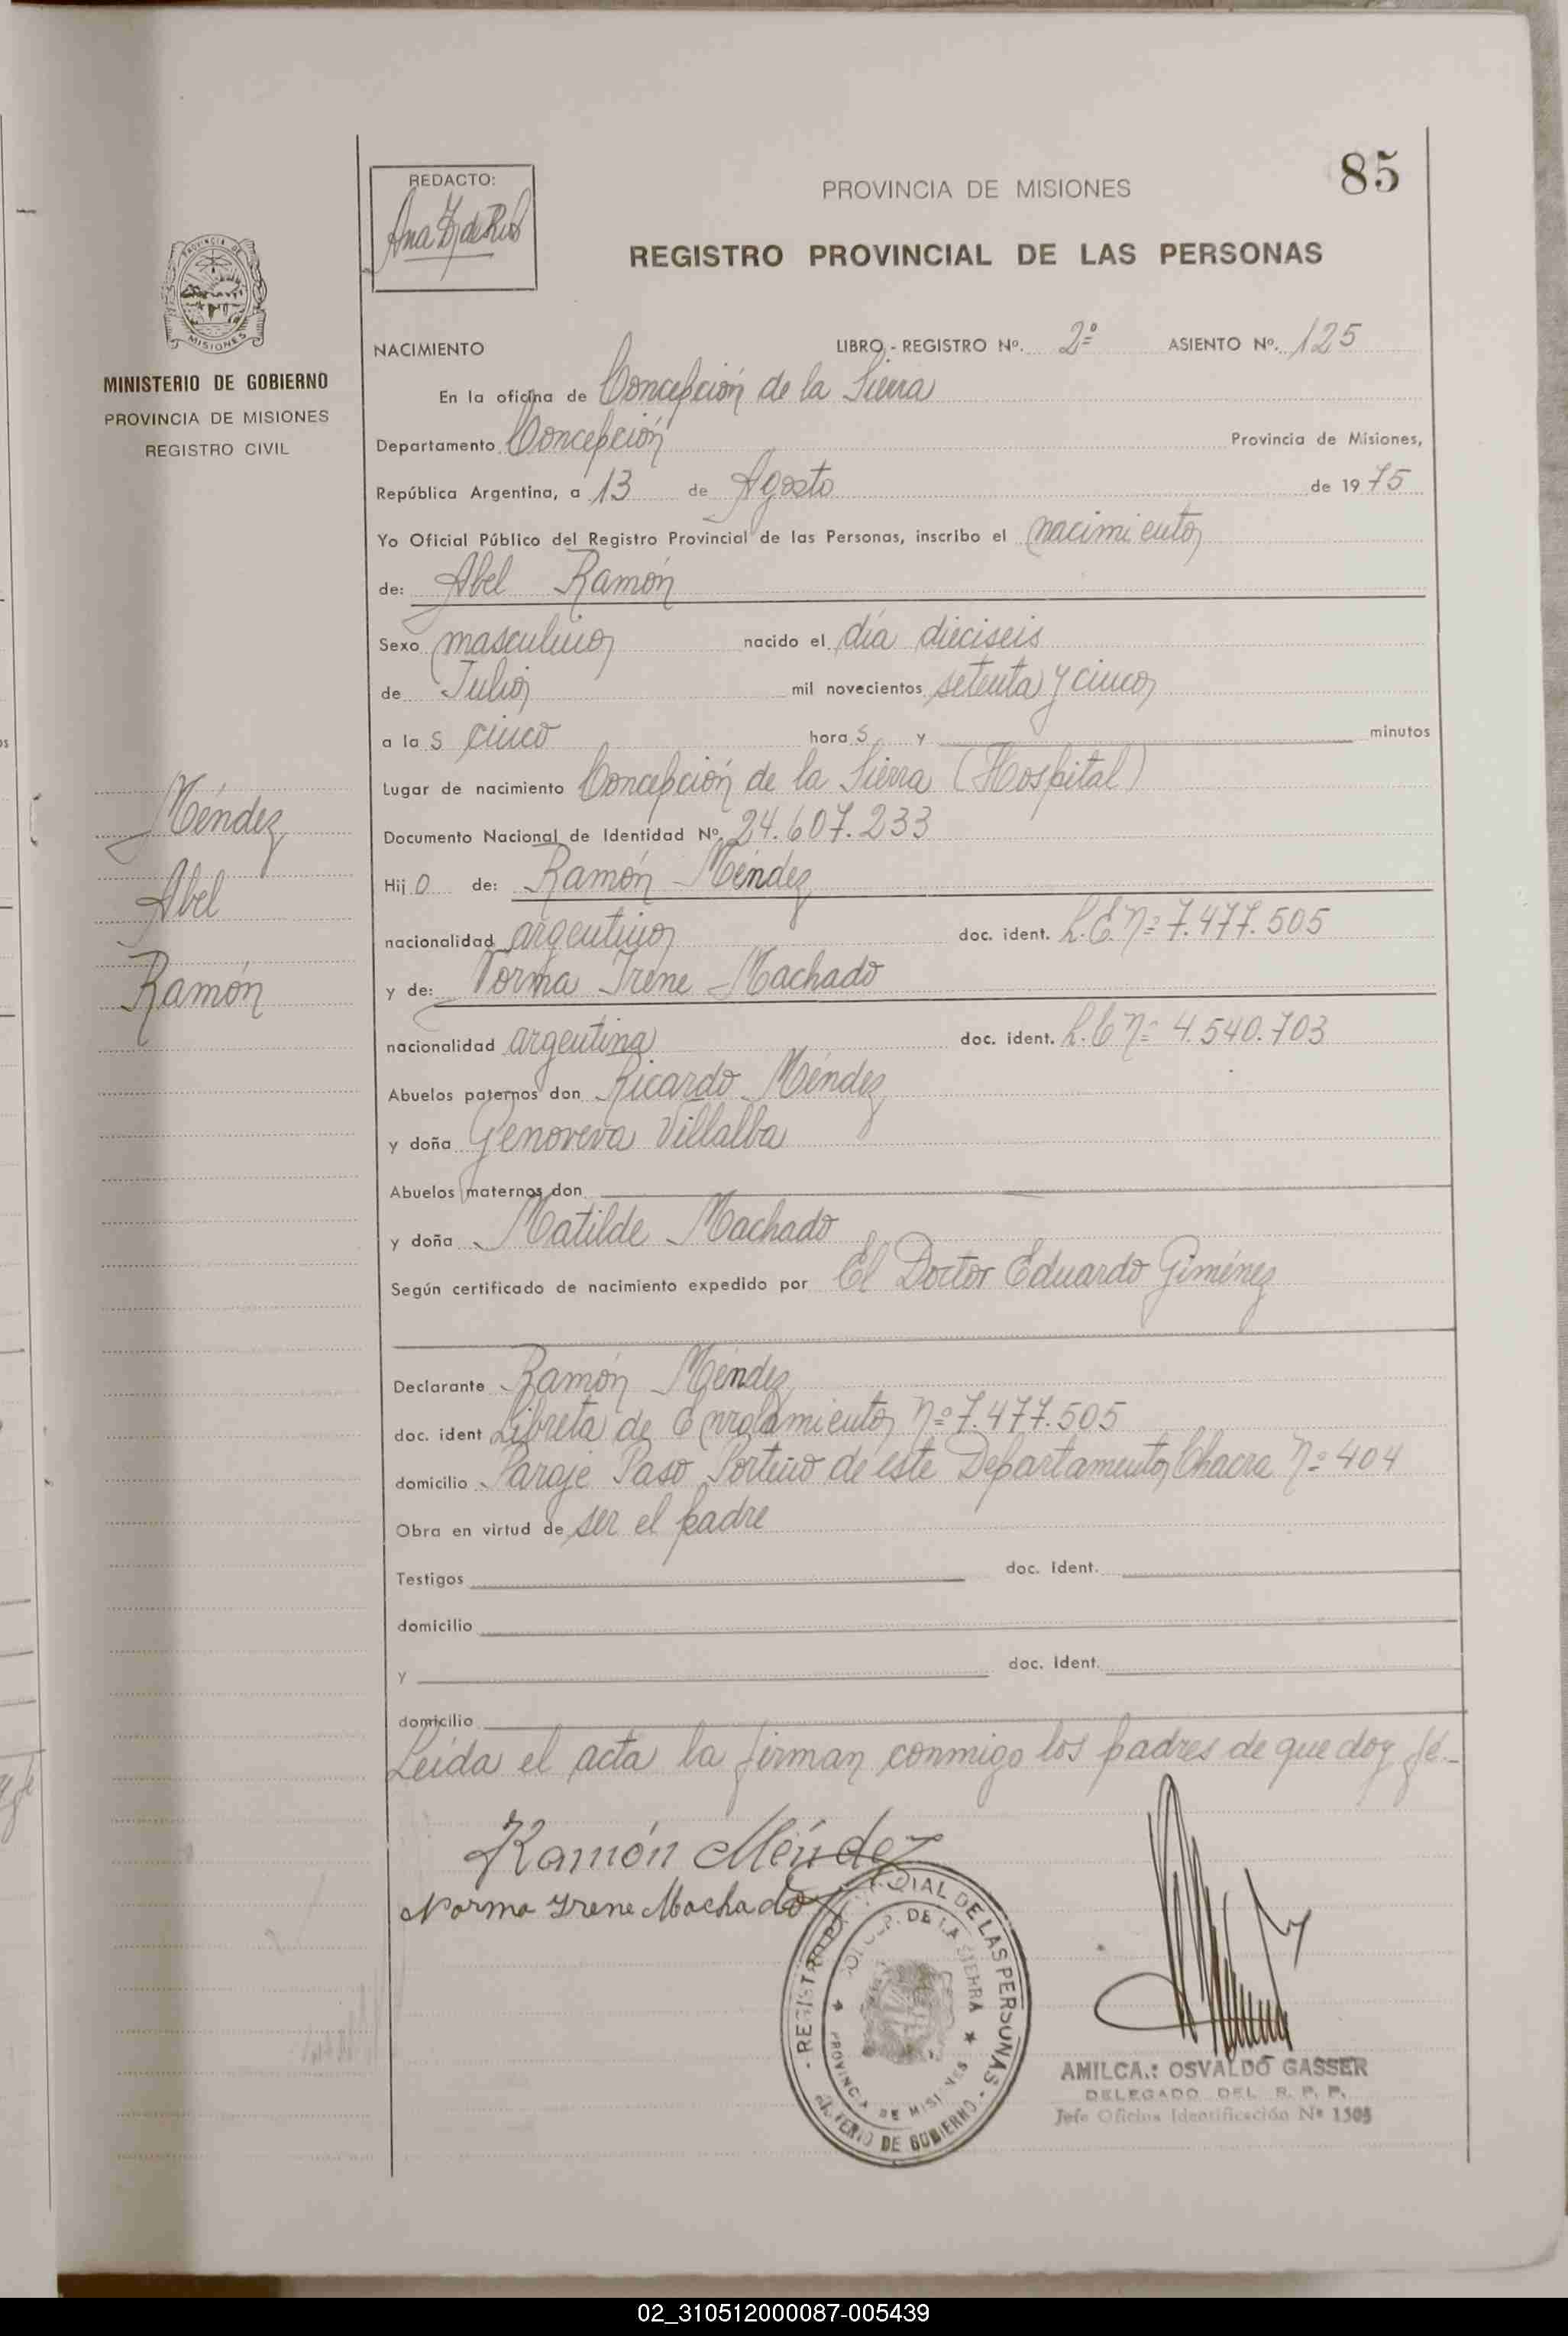 85
REDACTO:
PROVINCIA DE MISIONES
REGISTRO PROVINCIAL DE LAS PERSONAS
PROVINCIA DE
MISIONES
MINISTERIO DE GOBIERNO
PROVINCIA DE MISIONES
REGISTRO CIVIL
NACIMIENTO LIBRO - REGISTRO Nº. 2º ASIENTO Nº. 125
En la oficina de Concepción de la Sierra
Departamento Concepción Provincia de Misiones,
República Argentina, a 13 de Agosto de 1975
Yo Oficial Público del Registro Provincial de las Personas, inscribo el nacimiento
de: Abel Ramón
Sexo masculino nacido el día dieciseis
de Julio mil novecientos setenta y cinco
a las cinco horas y minutos
Lugar de nacimiento Concepción de la Sierra (Hospital)
Documento Nacional de Identidad Nº. 24.607.233
Hijo de: Ramón Méndez
nacionalidad argentino doc. ident. L.E. Nº 7.477.505
y de: Norma Irene Machado
nacionalidad argentina doc. ident. L.C Nº 4.540.703
Abuelos paternos don Ricardo Méndez
y doña Genoveva Villalba
Abuelos maternos don
y doña Matilde Machado
Según certificado de nacimiento expedido por El Doctor Eduardo Giménez
Declarante Ramón Méndez
doc. ident Libreta de Enrolamiento Nº 7.477.505
domicilio Paraje Paso Porteño de este Departamento, Chacra Nº 404
Obra en virtud de ser el padre
Testigos doc. ident.
domicilio
y doc. ident.
domicilio
Leída el acta la firman conmigo los padres de que doy fé.-
Méndez
Abel
Ramón
Ramón Méndez
Norma Irene Machado
DE LAS PERSONAS
DE LA SIERRA
PROVINCIA DE MISIONES
DE GOBIERNO
AMILCA.: OSVALDO GASSER
DELEGADO DEL R. P. P.
Jefe Oficina Identificación Nº 1505
02_310512000087-005439